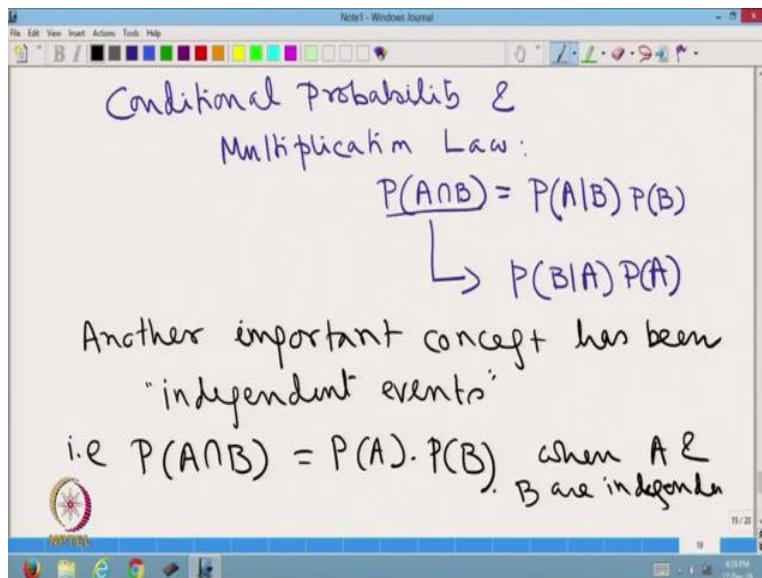 Note1 - Windows Journal
File Edit View Insert Actions Tools Help
B I
Conditional Probability &
Multiplication Law:
P(A∩B) = P(A|B) P(B)
↳ P(B|A) P(A)
Another important concept has been
"independent events"
i.e P(A∩B) = P(A). P(B). when A &
B are independen
NPTEL
19 / 20
19